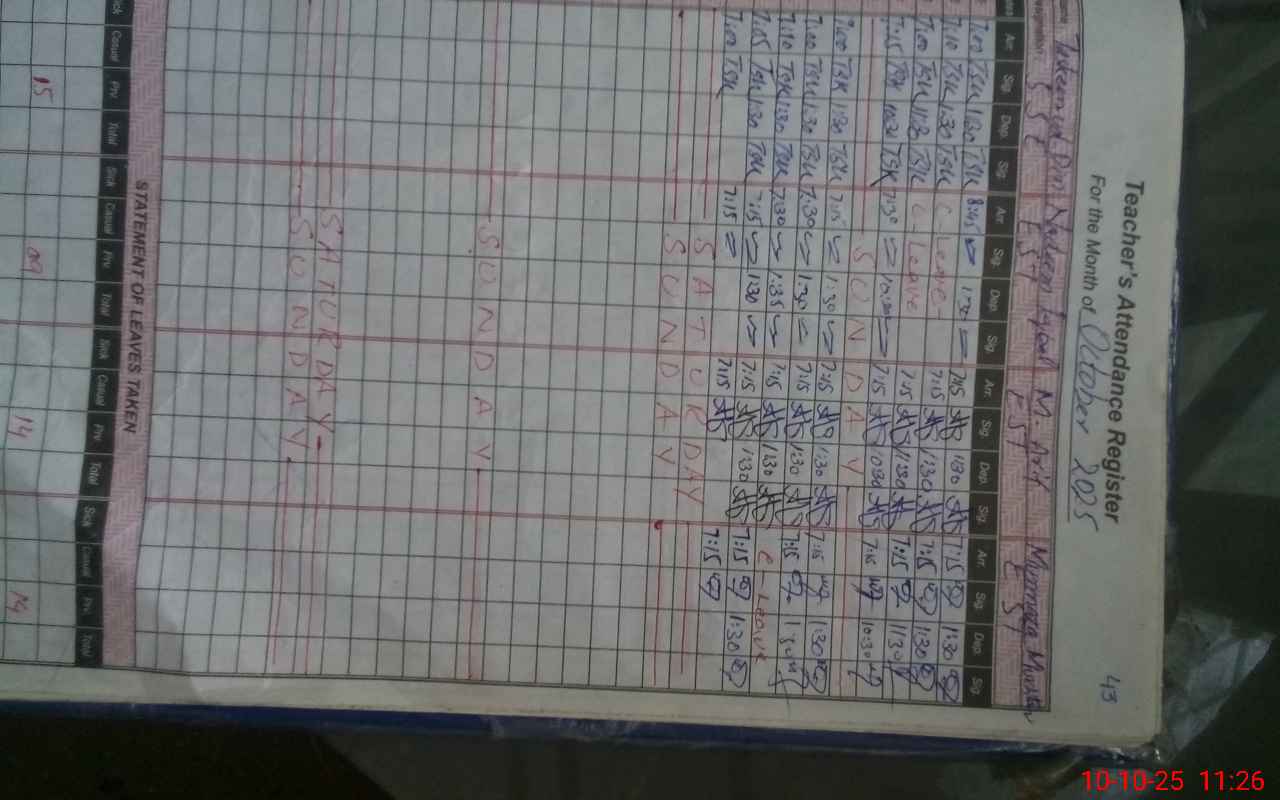 Teacher's Attendance Register
43
For the Month of October 2025
Nadeem Iqbal M. Arif Mumtaz
SSE EST EST EST
Arr. Sig. Dep. Sig. Arr. Sig. Dep. Sig. Arr. Sig. Dep. Sig. Arr. Sig. Dep. Sig.
7:00 TSK 1:30 TSK 8:45 1:30 7:15 1:30 7:15 1:30
7:10 TSK 1:30 TSK C-Leave 7:15 1:30 7:15 1:30
7:00 TSK 11:30 TSK C-Leave 7:15 11:30 7:15 11:30
7:15 TSK 10:30 TSK 7:30 10:30 7:15 10:30 7:15 10:30
SUNDAY
7:00 TSK 1:30 TSK 7:15 1:30 7:15 1:30 7:15 1:30
7:00 TSK 1:30 TSK 7:30 1:30 7:15 1:30 7:15 1:30
7:10 TSK 1:30 TSK 7:30 1:35 7:15 1:30 C-Leave
7:05 TSK 1:30 TSK 7:15 1:30 7:15 1:30 7:15 1:30
7:00 TSK 7:15 7:15 7:15
SATURDAY
SUNDAY
SUNDAY
SATURDAY
SUNDAY
STATEMENT OF LEAVES TAKEN
Sick Casual Priv. Total Sick Casual Priv. Total Sick Casual Priv. Total Sick Casual Priv. Total
15 09 14 14
10-10-25 11:26